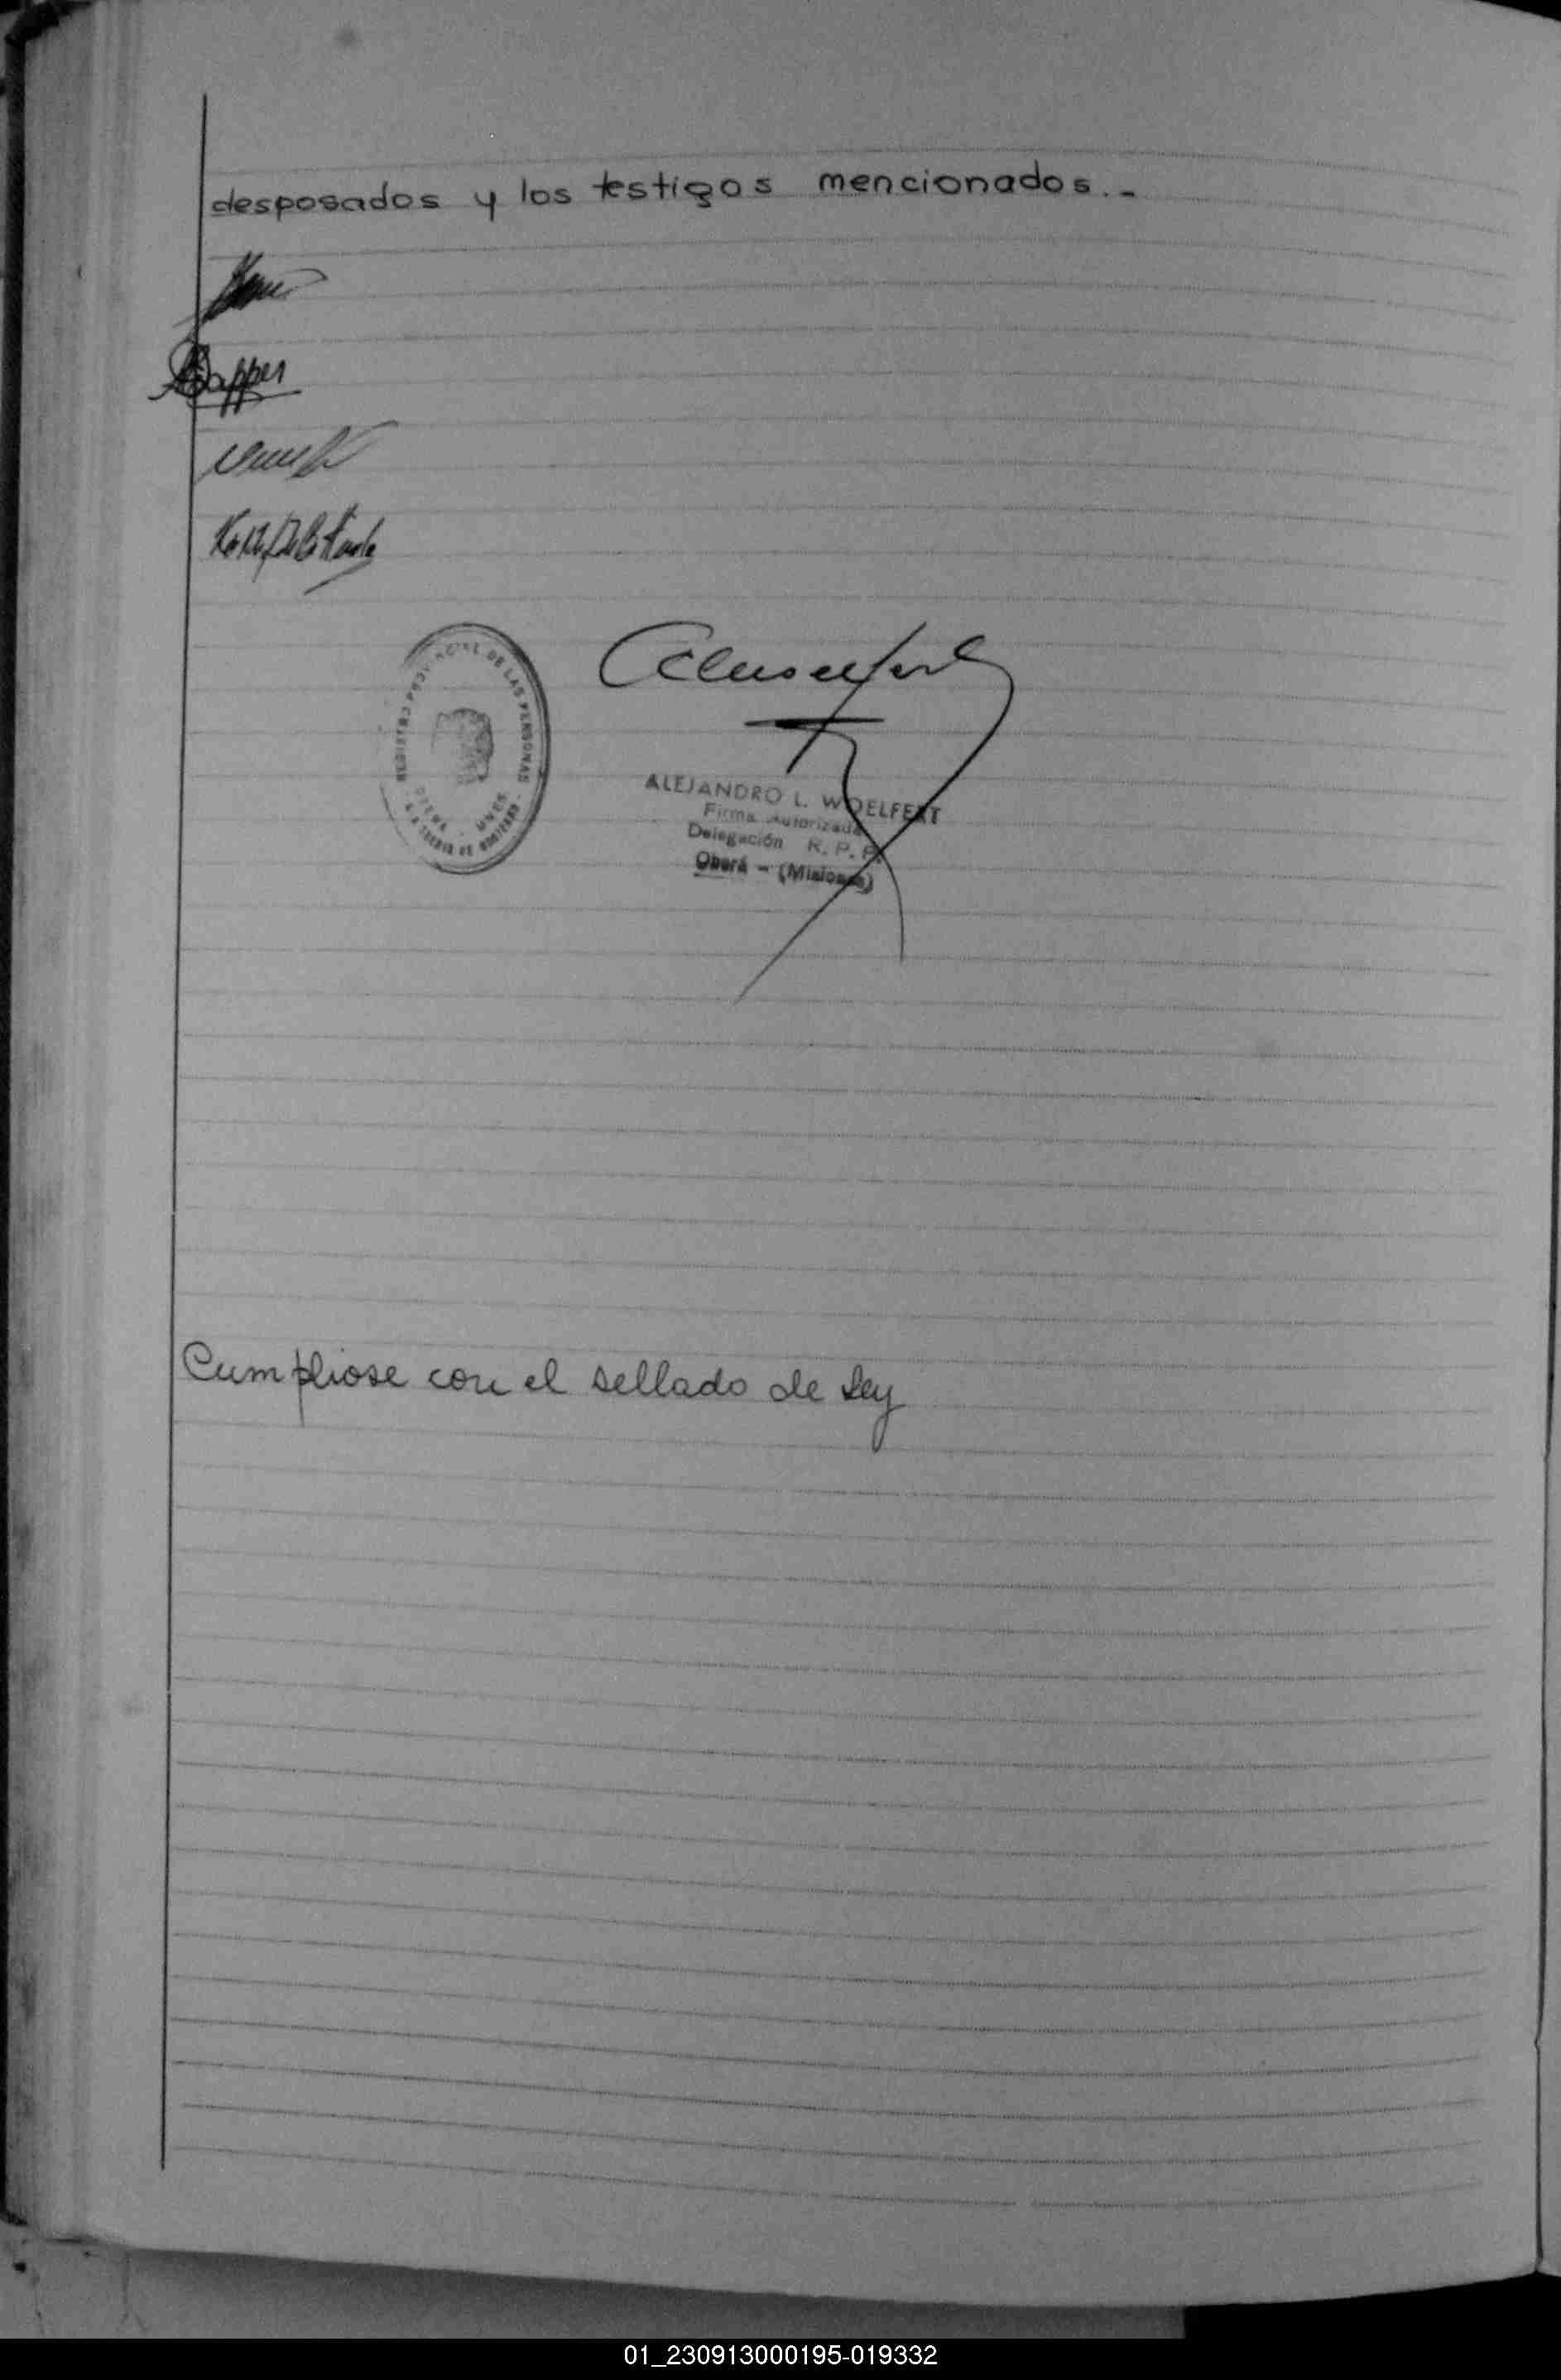 desposados y los testigos mencionados.-
REGISTRO PROVINCIAL DE LAS PERSONAS
OBERA - MNES.
ALEJANDRO L. WOELFERT
Firma Autorizada
Delegación R. P. P.
Oberá - (Misiones)
Cumpliose con el sellado de Ley
01_230913000195-019332